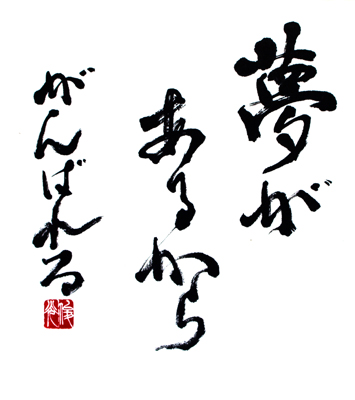 夢が
あるから
がんばれる